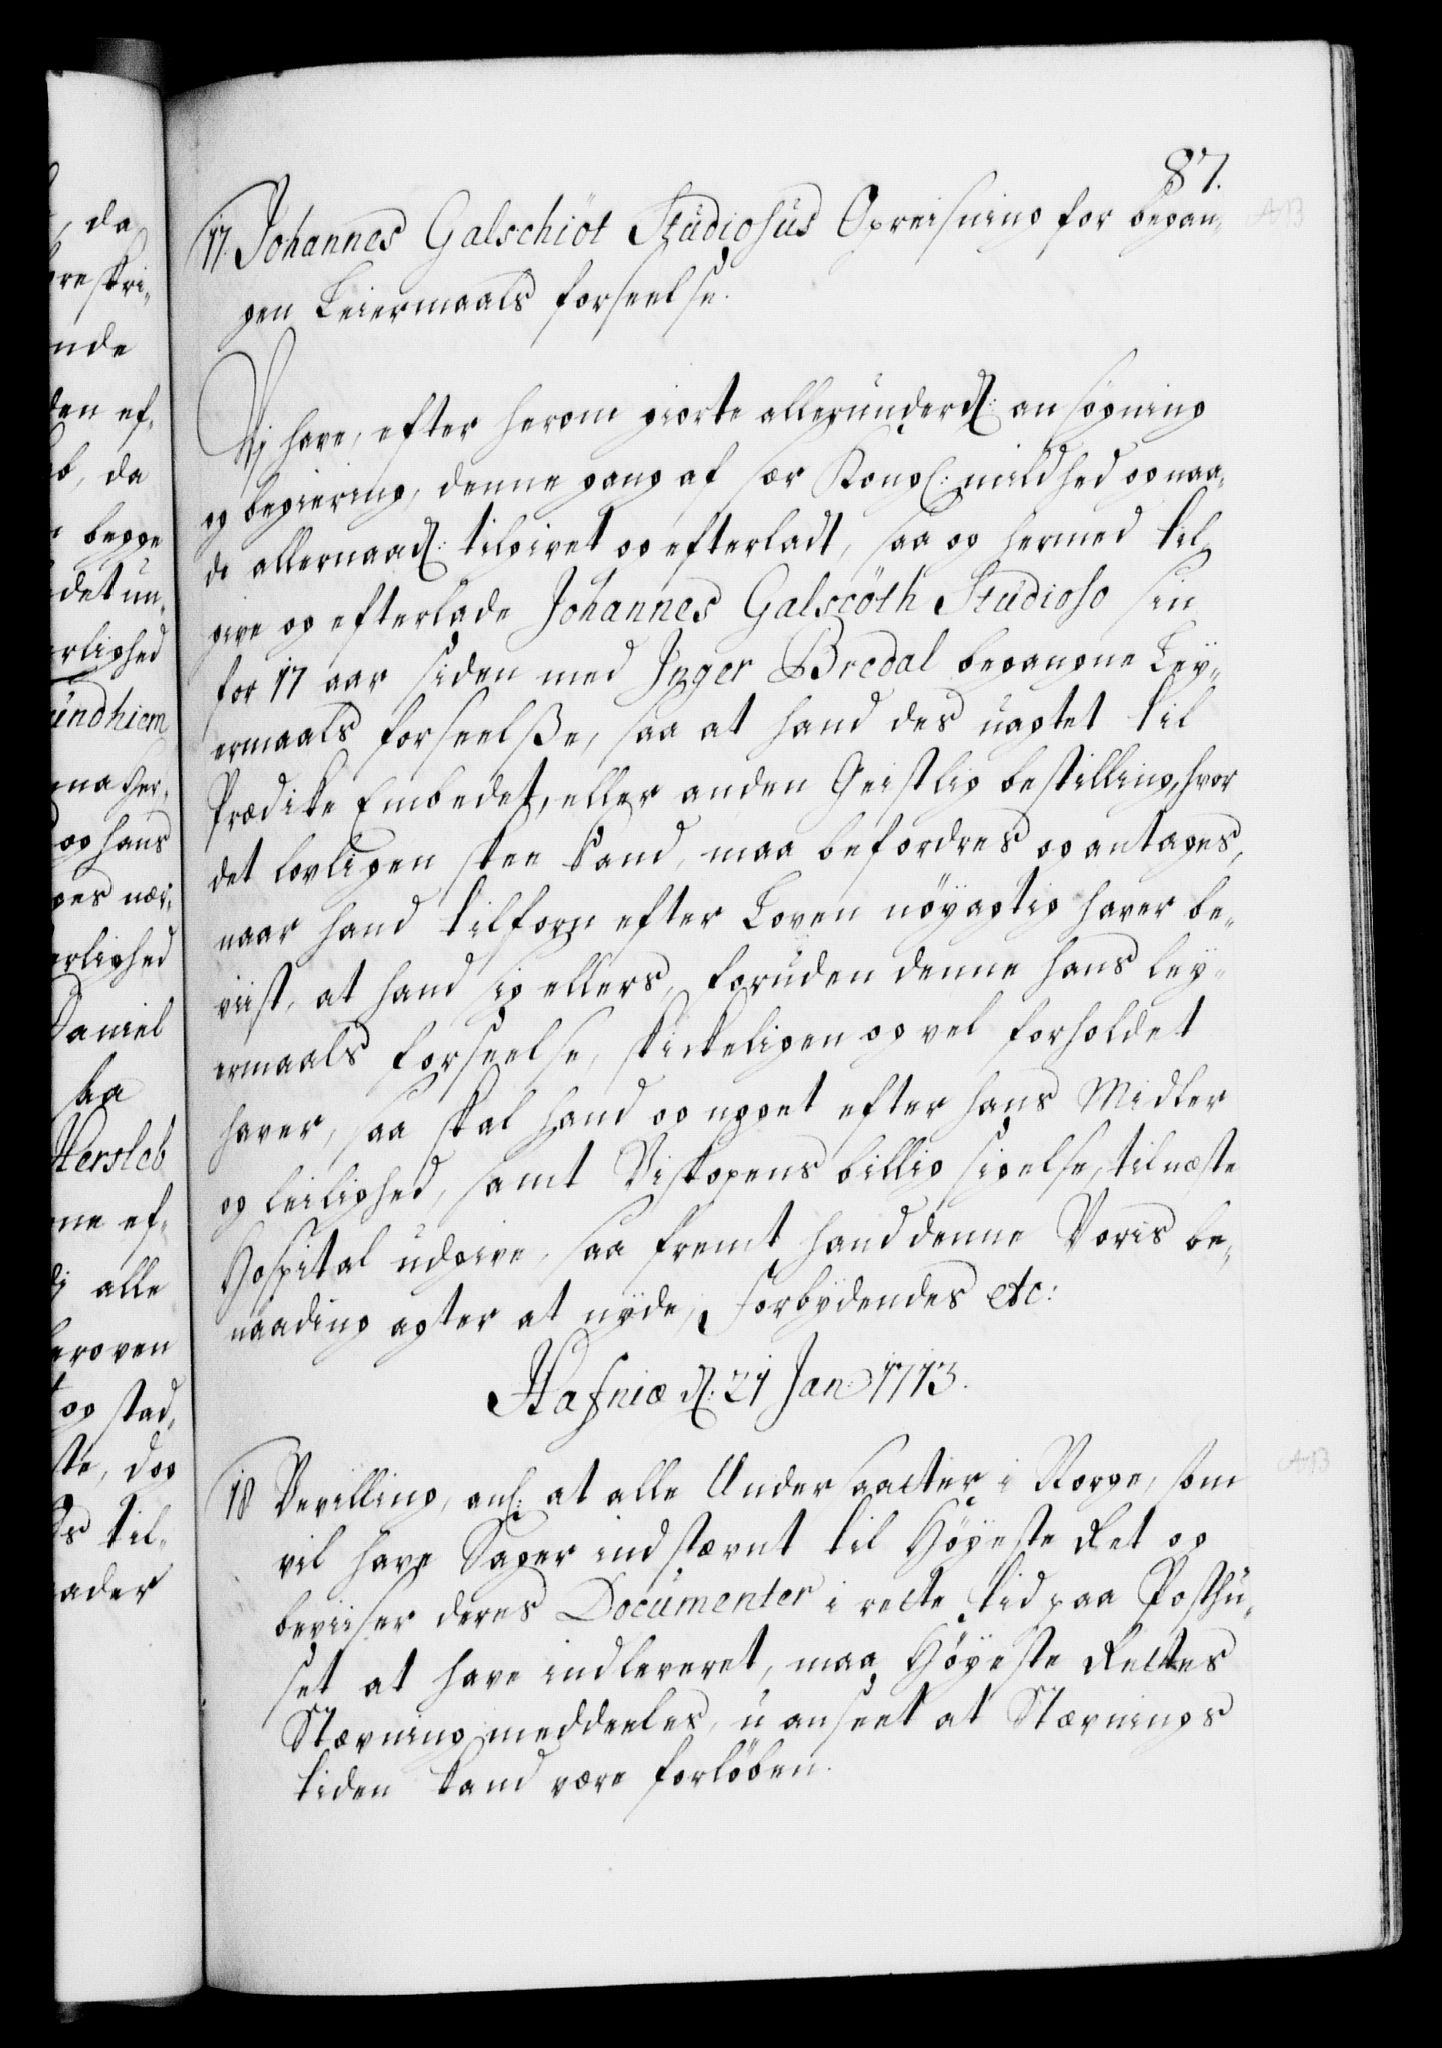 87.
17. Johannes Galschiöt Studiosus Opreisning for began-
gen Leiermaals forseelse.
Vj have, efter herom giorte allerunderd: ansøgning
og begiering, denne gang af sær Kongl: mildhed og naa-
de allernaad: tilgivet og efterladt, saa og hermed til-
give og efterlade Johannes Galscöth Studioso sin
for 17 aar siden med Inger Bredal begangne Ley-
ermaals forseelsse, saa at hand des uagtet til
Prædike Embedet, eller anden Geistlig bestilling, hvor
det lovligen skee kand, maa befordres og antages,
naar hand tilforn efter Loven nöyagtig haver be-
viist, at hand sig ellers, foruden denne hans ley-
ermaals forseelse, skikkeligen og vel forholdet
haver, saa skal hand og noget efter hans Midler
og leilighed, samt Biskopens billig sigelse, til næste
Hospital udgive, saa fremt hand denne Voris be-
naading agter at nyde, Forbydendes etc:
Hafniæ d: 21 Jan: 1713.
18 Bevilling, anl: at alle Undersaatter i Norge, som
vil have Sager indstævnt til Höyeste Ret og
beviiser deres Documenter i rette tid paa Posthu-
set at have indleveret, maa Höyeste Rettes
Stævning meddeeles, u anseet at Stævnings
tiden kand være forlöben.